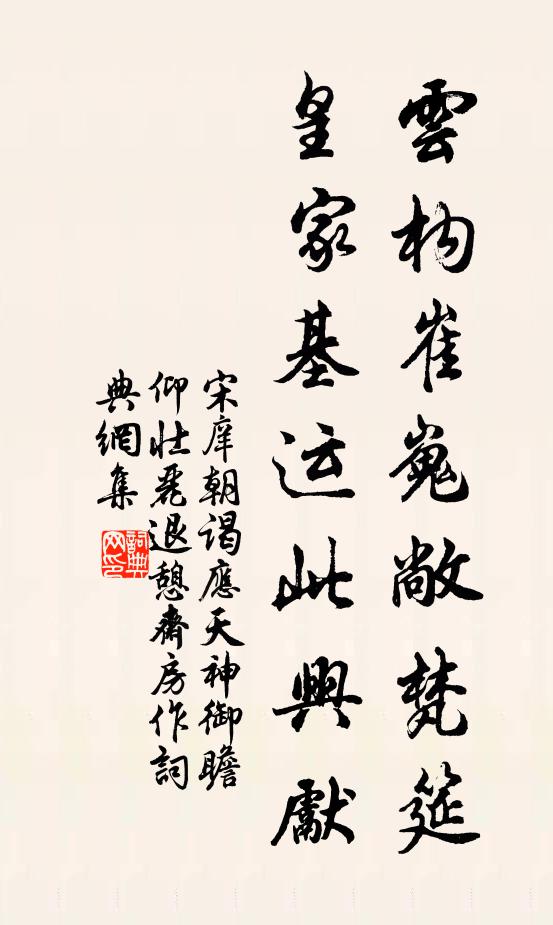 雲构崔嵬敞梵筵
皇家基运此興獻
宋庠朝謁應天神御瞻
仰壮麗退憩齋房作詞
典網集
詞典网印